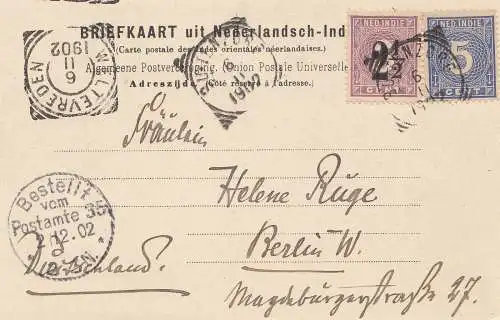 BRIEFKAART uit Nederlandsch-Ind
(Carte postale des Indes orientales néerlandaises.)
Algemeene Postvereeniging. (Union Postale Universelle
Adreszijde. (Côté réservé à l'adresse.)
NED. INDIE
2½
CENT
NED. INDIE
5
CENT
WELTEVREDEN
6
11
1902
6
11
1902
6
11
Fräulein
Helene Ruge
Berlin W.
Magdeburgerstraße 27.
Deutschland.
Bestellt
vom
Postamte 35
12.02